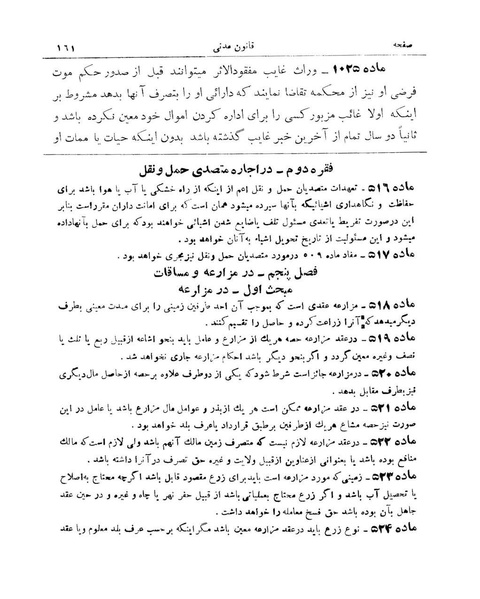 صفحه قانون مدنی ۱۶۱
ماده ۱۰۲۵ – وراث غایب مفقودالاثر میتوانند قبل از صدور حکم موت
فرضی او نیز از محکمه تقاضا نمایند که دارائی او را بتصرف آنها بدهد مشروط بر
اینکه اولا غائب مزبور کسی را برای اداره کردن اموال خود معین نکرده باشد و
ثانیاً دو سال تمام از آخرین خبر غایب گذشته باشد بدون اینکه حیات یا ممات او
فقره دوم – در اجاره متصدی حمل و نقل
ماده ۵۱۶ – تعهدات متصدیان حمل و نقل اعم از اینکه از راه خشکی یا آب یا هوا باشد برای
حفاظت و نگاهداری اشیائیکه بآنها سپرده میشود همان است که برای امانت داران مقرر است بنابر
این در صورت تفریط یا تعدی مسئول تلف یا ضایع شدن اشیائی خواهند بود که برای حمل بآنها داده
میشود و این مسئولیت از تاریخ تحویل اشیاء به آنان خواهد بود .
ماده ۵۱۷ – مفاد ماده ۵۰۹ در مورد متصدیان حمل و نقل نیز مجری خواهد بود .
فصل پنجم – در مزارعه و مساقات
مبحث اول – در مزارعه
ماده ۵۱۸ – مزارعه عقدی است که بموجب آن احد طرفین زمینی را برای مدت معینی بطرف
دیگر میدهد که آنرا زراعت کرده و حاصل را تقسیم کنند .
ماده ۵۱۹ – در عقد مزارعه حصه هر یک از مزارع و عامل باید بنحو اشاعه از قبیل ربع یا ثلث یا
نصف وغیره معین گردد و اگر بنحو دیگر باشد احکام مزارعه جاری نخواهد شد .
ماده ۵۲۰ – در مزارعه جائز است شرط شود که یکی از دو طرف علاوه بر حصه از حاصل مال دیگری
نیز بطرف مقابل بدهد .
ماده ۵۲۱ – در عقد مزارعه ممکن است هر یک از بذر و عوامل مال مزارع باشد یا عامل در این
صورت نیز حصه مشاع هر یک از طرفین بر طبق قرارداد یا عرف بلد خواهد بود .
ماده ۵۲۲ – در عقد مزارعه لازم نیست که متصرف زمین مالک آنهم باشد ولی لازم است که مالک
منافع بوده باشد یا بعنوانی از عناوین از قبیل ولایت و غیره حق تصرف در آنرا داشته باشد .
ماده ۵۲۳ – زمینی که مورد مزارعه است باید برای زرع مقصود قابل باشد اگرچه محتاج به اصلاح
یا تحصیل آب باشد و اگر زرع محتاج بعملیاتی باشد از قبیل حفر نهر یا چاه و غیره و در حین عقد
جاهل بآن بوده باشد حق فسخ معامله را خواهد داشت .
ماده ۵۲۴ – نوع زرع باید در عقد مزارعه معین باشد مگر اینکه بر حسب عرف بلد معلوم و یا عقد